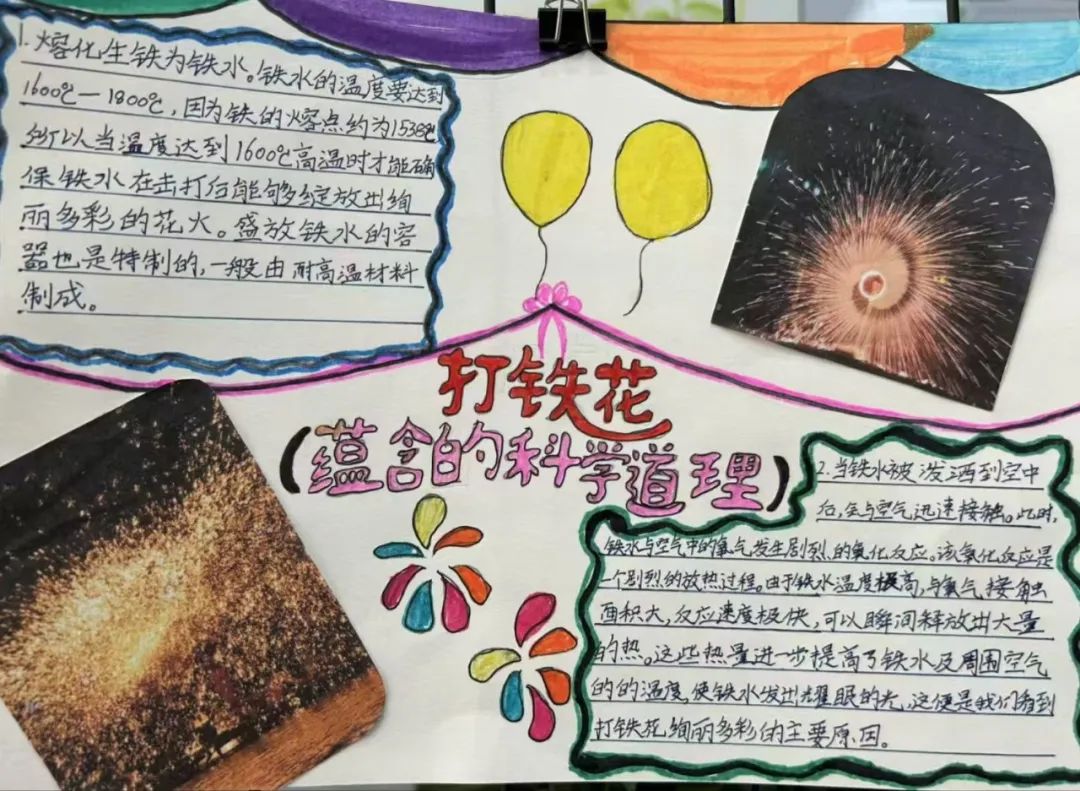 1. 熔化生铁为铁水。铁水的温度要达到
1600℃—1800℃，因为铁的熔点约为1538℃
所以当温度达到1600℃高温时才能确
保铁水在击打后能够绽放出绚
丽多彩的花火。盛放铁水的容
器也是特制的，一般由耐高温材料
制成。
打铁花
（蕴含的科学道理）
2. 当铁水被泼洒到空中
后，会与空气迅速接触。此时，
铁水与空气中的氧气发生剧烈的氧化反应。该氧化反应是
一个剧烈的放热过程。由于铁水温度极高，与氧气接触
面积大，反应速度极快，可以瞬间释放出大量
的热。这些热量进一步提高了铁水及周围空气
的的温度，使铁水发出耀眼的光，这便是我们看到
打铁花绚丽多彩的主要原因。